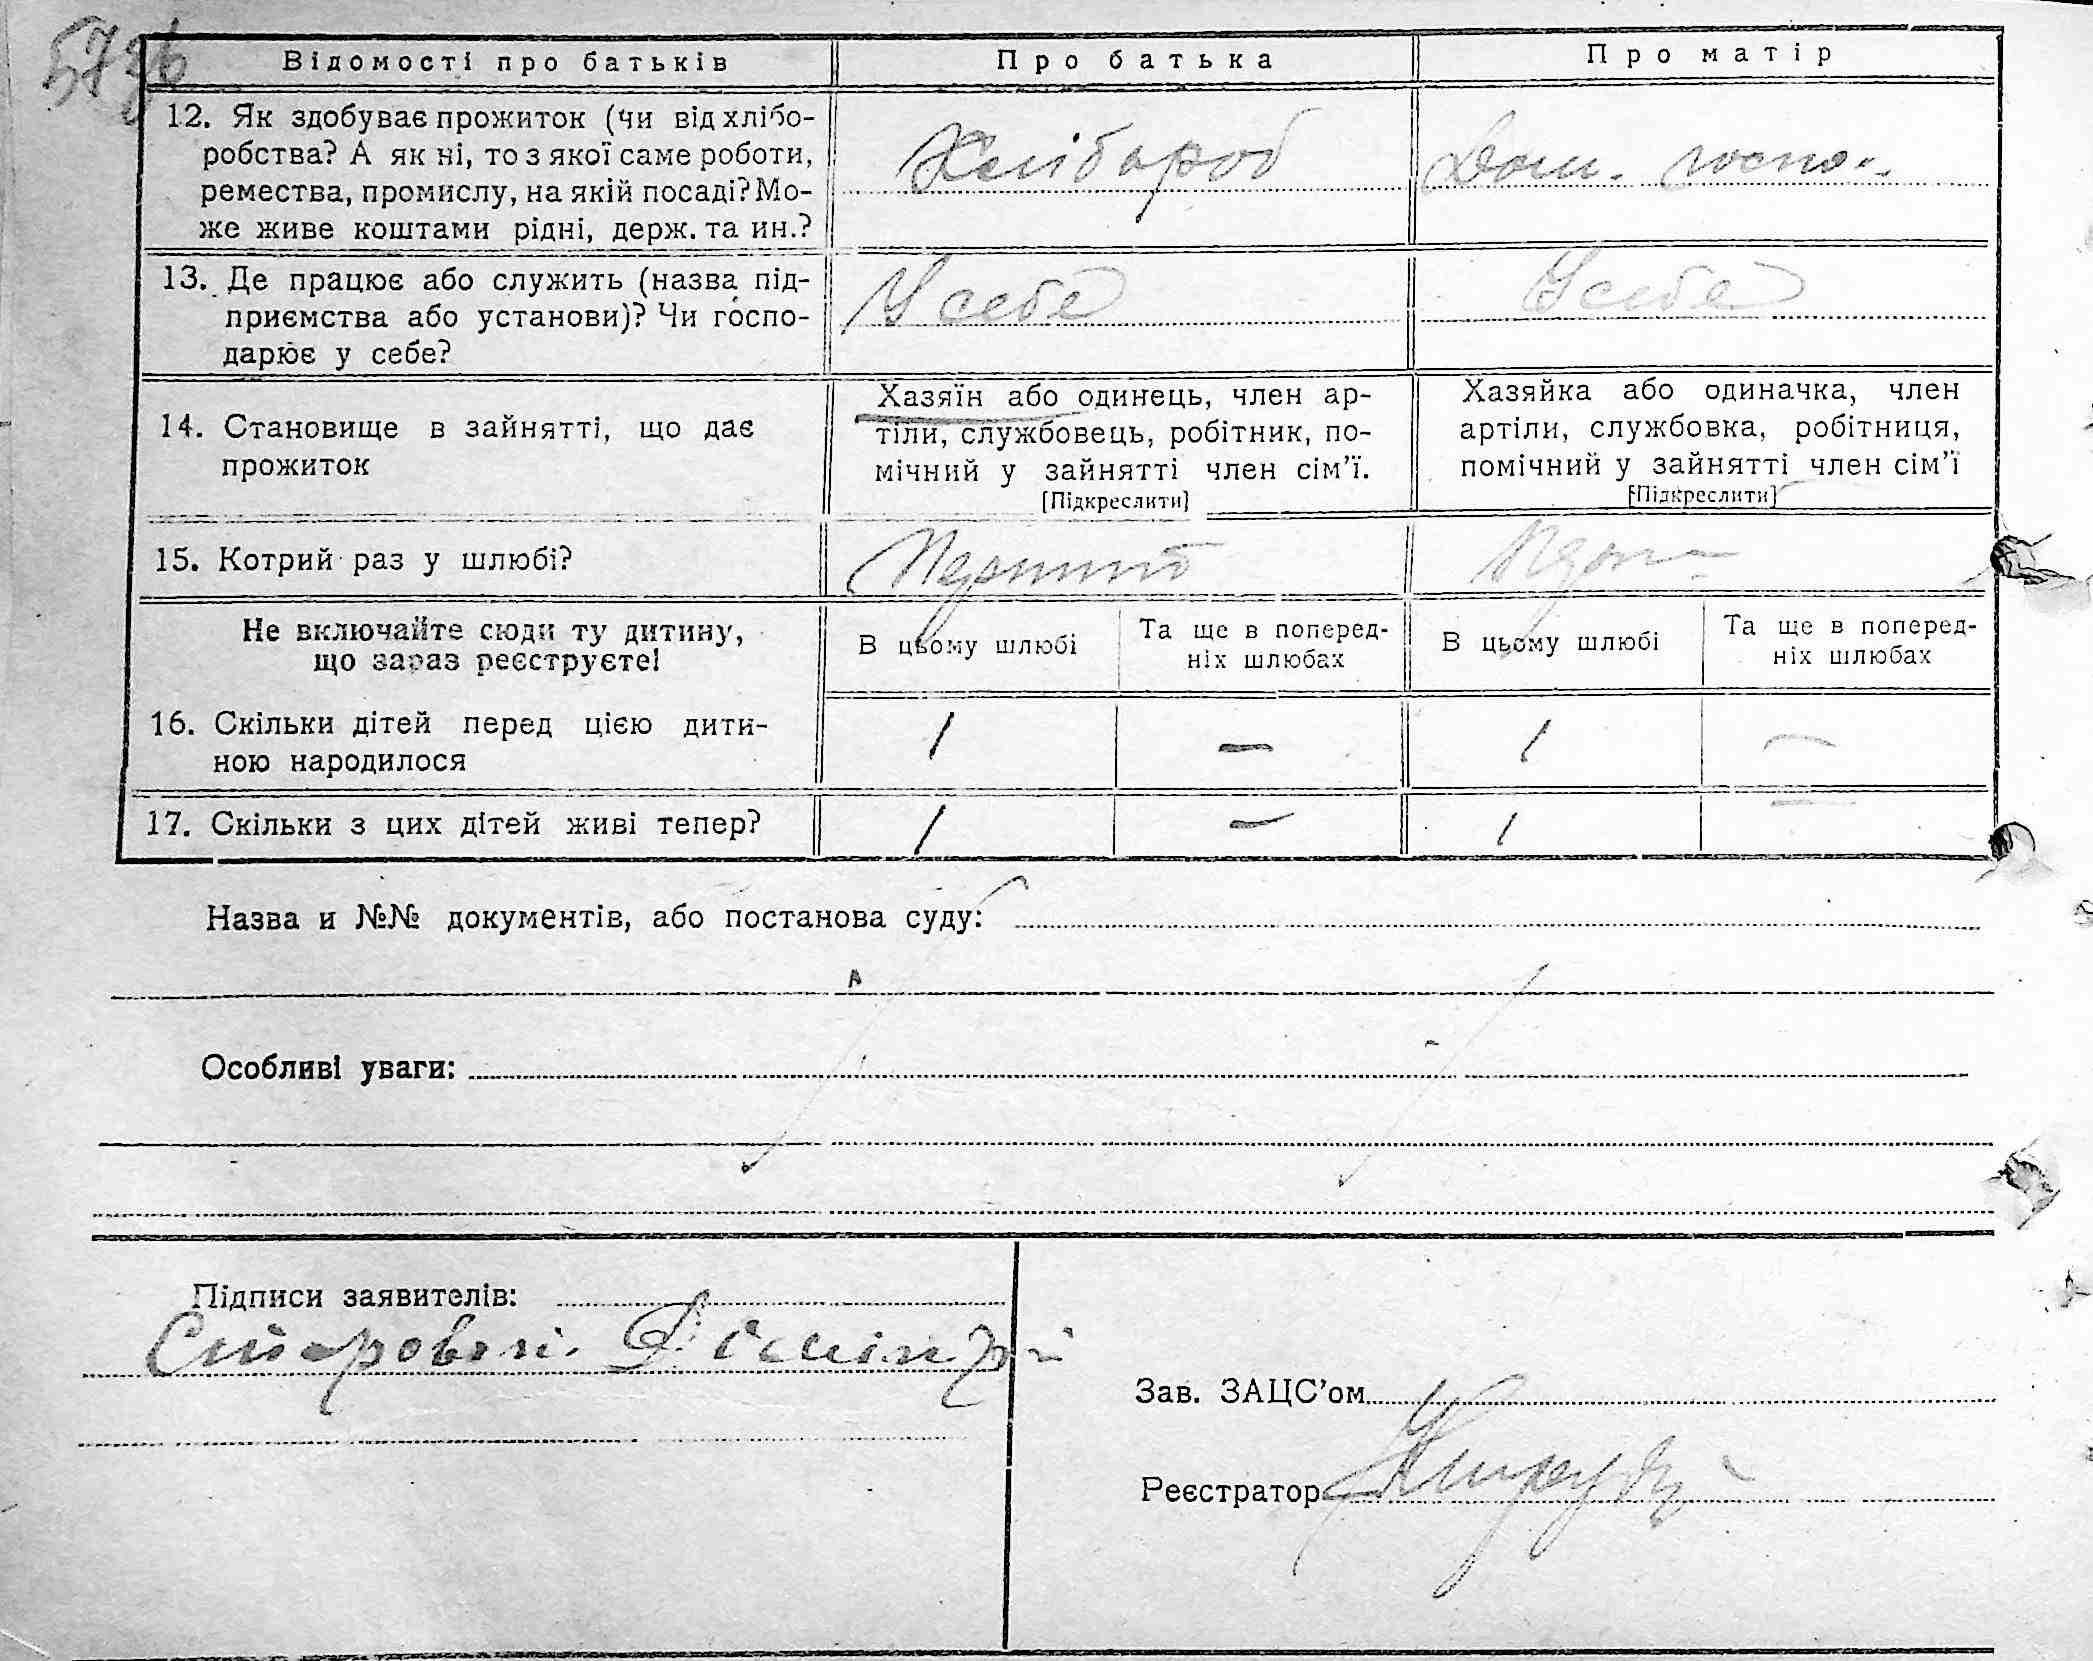 573б
Відомості про батьків Про батька Про матір
12. Як здобуває прожиток (чи від хлібо-
робства? А як ні, то з якої саме роботи,
ремества, промислу, на якій посаді? Мо-
же живе коштами рідні, держ. та ин.?
Хлібороб Дом. госпо..
13. Де працює або служить (назва під-
приємства або установи)? Чи госпо-
дарює у себе?
У себе У себе
14. Становище в зайнятті, що дає
прожиток
Хазяїн або одинець, член ар-
тіли, службовець, робітник, по-
мічний у зайнятті член сім'ї.
[Підкреслити]
Хазяйка або одиначка, член
артіли, службовка, робітниця,
помічний у зайнятті член сім'ї
[Підкреслити]
15. Котрий раз у шлюбі?
Не включайте сюди ту дитину,
що зараз реєструєте!
В цьому шлюбі
Та ще в поперед-
ніх шлюбах
В цьому шлюбі
Та ще в поперед-
ніх шлюбах
16. Скільки дітей перед цією дити-
ною народилося
1 — 1 —
17. Скільки з цих дітей живі тепер? 1 — 1 —
Назва и №№ документів, або постанова суду:
Особливі уваги:
Підписи заявителів:
Зав. ЗАЦС'ом
Реєстратор